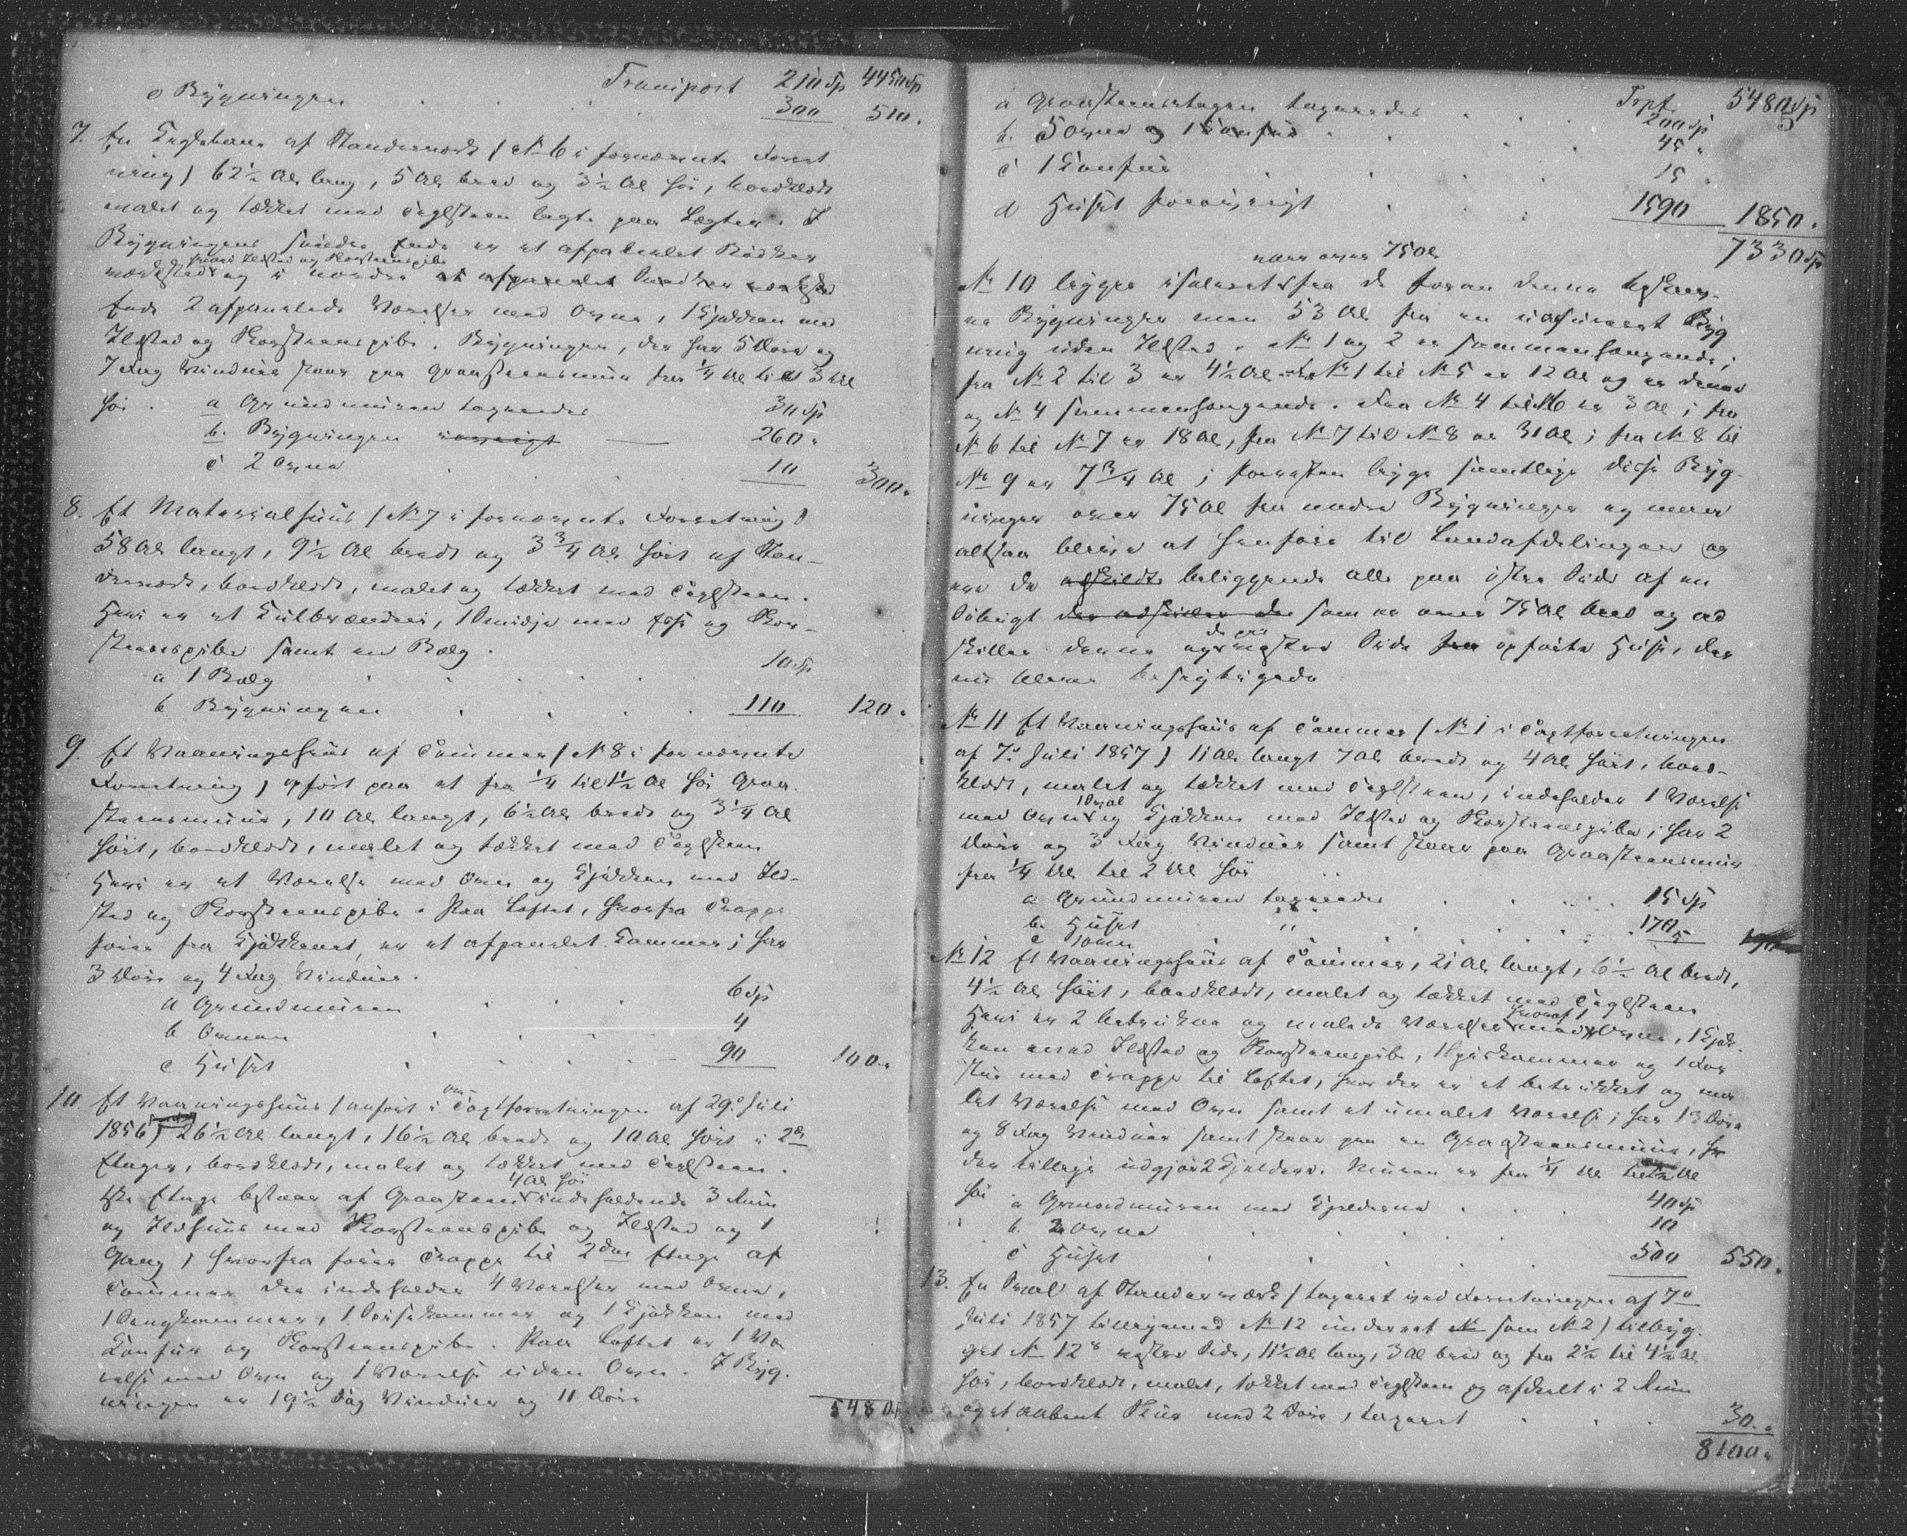 Transport 210 Sp 4450 Sp
c Bygningen . . . 300 510.
7. En Teglebane af Standerværk / No 6 i fornævnte Forret
ning / 62½ Al lang, 5 Al bred og 3½ Al høi, bordklædt
malet og tækket med Teglsteen lagte paa Lægter. I
Bygningens søndre Ende er et afpanelet Bødker
værksted hvori Ildsted og Skorsteenspibe og i nordre et afpanelet Snedker værksted
Ende 2 afpanelede Værelser med Ovne, 1 Kjøkken med
Ildsted og Skorsteenspibe. Bygningen, der har 5 Døre og
7 Fag Vinduer staar paa Graasteensmuur fra ¼ Al til 3 Al
høi. a Grundmuren taxeredes 30 Sp
b. Bygningen iøvrigt 260.
c 2 Ovne . . 10 300.
8. Et Materialhuus / No 7 i fornævnte Forretning /
58 Al langt, 9½ Al bredt og 3¾ Al høit af Stan-
derværk, bordklædt, malet og tækket med Teglsteen.
Heri er et Kulbrænderi, 1 Smidje med Esse og Skor-
steenspibe samt en Bælg.
a 1 Bælg . . . . 10 Sp
b Bygningen . . . . 110 120.
9. Et Vaaningshuus af Tømmer / No 8 i fornævnte
Forretning / opført paa et fra ¼ til 1½ Al høi Graa
steensmuur, 10 Al langt, 6½ Al bredt og 3¼ Al
høit, bordklædt, malet og tækket med Teglsteen
Heri er et Værelse med Ovn og Kjøkken med Ild-
sted og Skorsteenspibe. Paa Loftet, hvorfra Trappe
fører fra Kjøkkenet, er et afpanelet Kammer; har
3 Døre og 4 Fag Vinduer.
a Grundmuren . . . 6 Sp
b Ovnen . . . 4
c Huset . . . 90 100.
10. Et Vaaningshuus / anført i Taxtforretningen af 29de Juli
1856 / 26½ Al langt, 16½ Al bredt og 10 Al høit i 2de
Etager, bordklædt, malet og tækket med Teglsteen.
1ste Etage bestaar af Graasteen 4 Al høi indeholdende 3 Rum
og Ildhuus med Skorsteenspibe og Ildsted og 1
Gang, hvorfra fører Trappe til 2den Etage af
Tømmer der indeholder 4 Værelser med Ovne,
1 Sengkammer, 1 Spisekammer og 1 Kjøkken med
Komfur og Skorsteenspibe. Paa Loftet er 1 Væ
relse med Ovn og 1 Værelse uden Ovn. I Byg.
ningen er 19½ Fag Vinduer og 11 Døre
5480 Sp
Trpt. 5480 Sp
a Graasteensetagen taxeredes . . 200 Sp
b. 5 Ovne og 1 Komfur . . . 45.
c 1 Komfur . . . 15.
d Huset forøvrigt . . . 1590 1850.
7330 Sp
nær over 75 Al
No 10 ligger isoleret fra de foran denne beskrev-
ne Bygninger men 53 Al fra en uassureret Byg
ning uden Ildsted. No 1 og 2 er sammenhængende;
fra No 2 til 3 er 4½ Al No 1 til No 5 er 12 Al og er denne
og No 4 sammenhængende. Fra No 4 til 6 er 3 Al; fra
No 6 til No 7 er 18 Al, fra No 7 til No 8 er 31 Al; fra No 8 til
No 9 er 7¾ Al; forresten ligge samtlige disse Byg-
ninger over 75 Al fra andre Bygninger og maa
altsaa blive at henføre til Landafdelingen og
ere de adskildte beliggende alle paa østre Side af en
Søbugt der adskiller de som er over 75 Al bred og ad
skiller denne og de paa vestre Side opførte Huse, der
nu bleve besigtigede
No 11 Et Vaaningshuus af Tømmer / No 1 i Taxtforretningen
af 7de Juli 1857 / 11 Al langt 7 Al bredt og 4 Al høit, bord-
klædt, malet og tækket med Teglsteen, indeholder 1 Værelse
med Ovn, 1 Sval og Kjøkken med Ildsted og Skorsteenspibe; har 2
Døre og 3 Fag Vinduer samt staar paa Graasteensmuur
fra ¼ Al til 2 Al høi
a Grundmuren taxeredes . . . 15 Sp
b. Huset „ . . . 170
c 1 Ovn 5 190
No 12 Et Vaaningshuus af Tømmer, 21 Al langt, 6½ Al bredt,
4½ Al høit, bordklædt, malet og tækket med Teglsteen
Heri er 2 betrukne og malede Værelser med Ovne, 1 Kjøk-
ken med Ildsted og Skorsteenspibe, 1 Spiskammer og 1 For
stue med Trappe til Loftet, hvor der er et betrukket og ma
let Værelse med Ovn samt et umalet Værelse; har 13 Døre
og 8 Fag Vinduer samt staar paa en Graasteensmuur,
der tillige udgjør 2 Kjeldere. Muren er fra ¼ Al til ½ Al
høi a Grundmuren med Kjelderne . . 40 Sp
b. 2 Ovne . . . 10
c Huset . . . 500 550.
13. En Sval af Standerværk / taxeret ved Forretningen af 7de
Juli 1857 tilligemed No 12 underet som No 2 / tilbyg.
get No 12s vestre Side, 11½ Al lang, 3 Al bred og fra 2½ til 4½ Al
høi, bordklædt, malet, tækket med Teglsteen og afdeelt i 2 Rum
og et aabent Skur med 2 Døre, taxeret . . . 30.
8100.